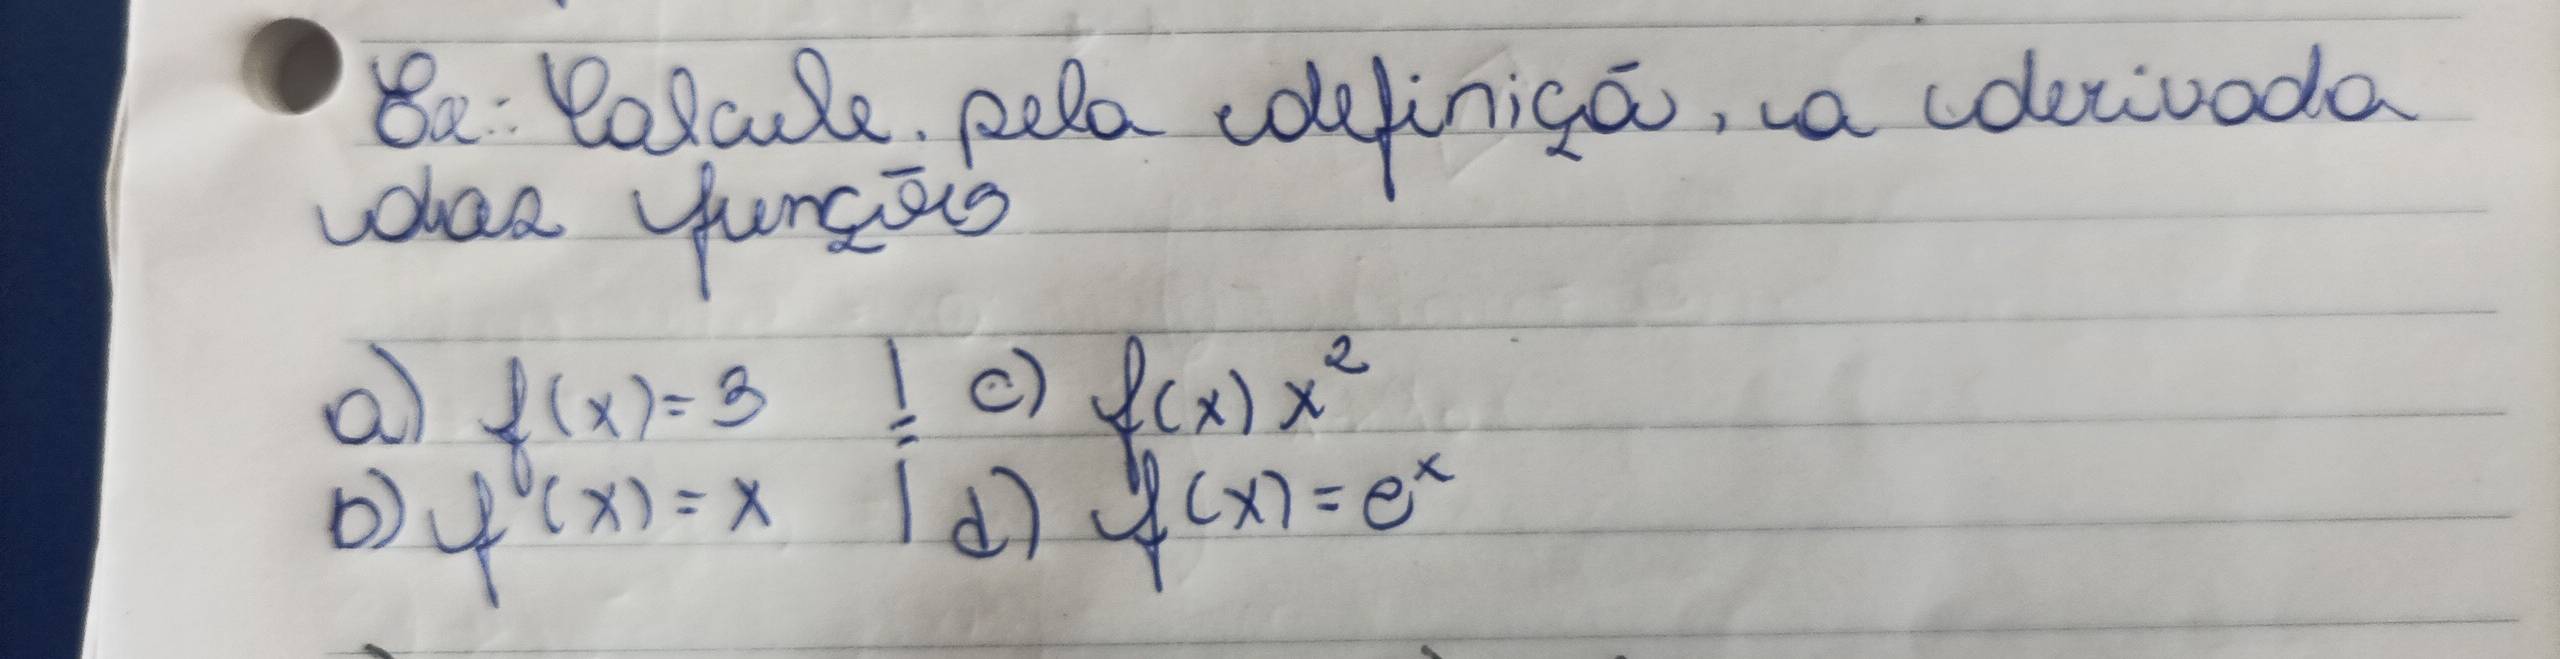 Ex: Calcule, pela definição, a derivada
das funções
a) f(x) = 3 | c) f(x) x²
b) f(x) = x | d) f(x) = eˣ